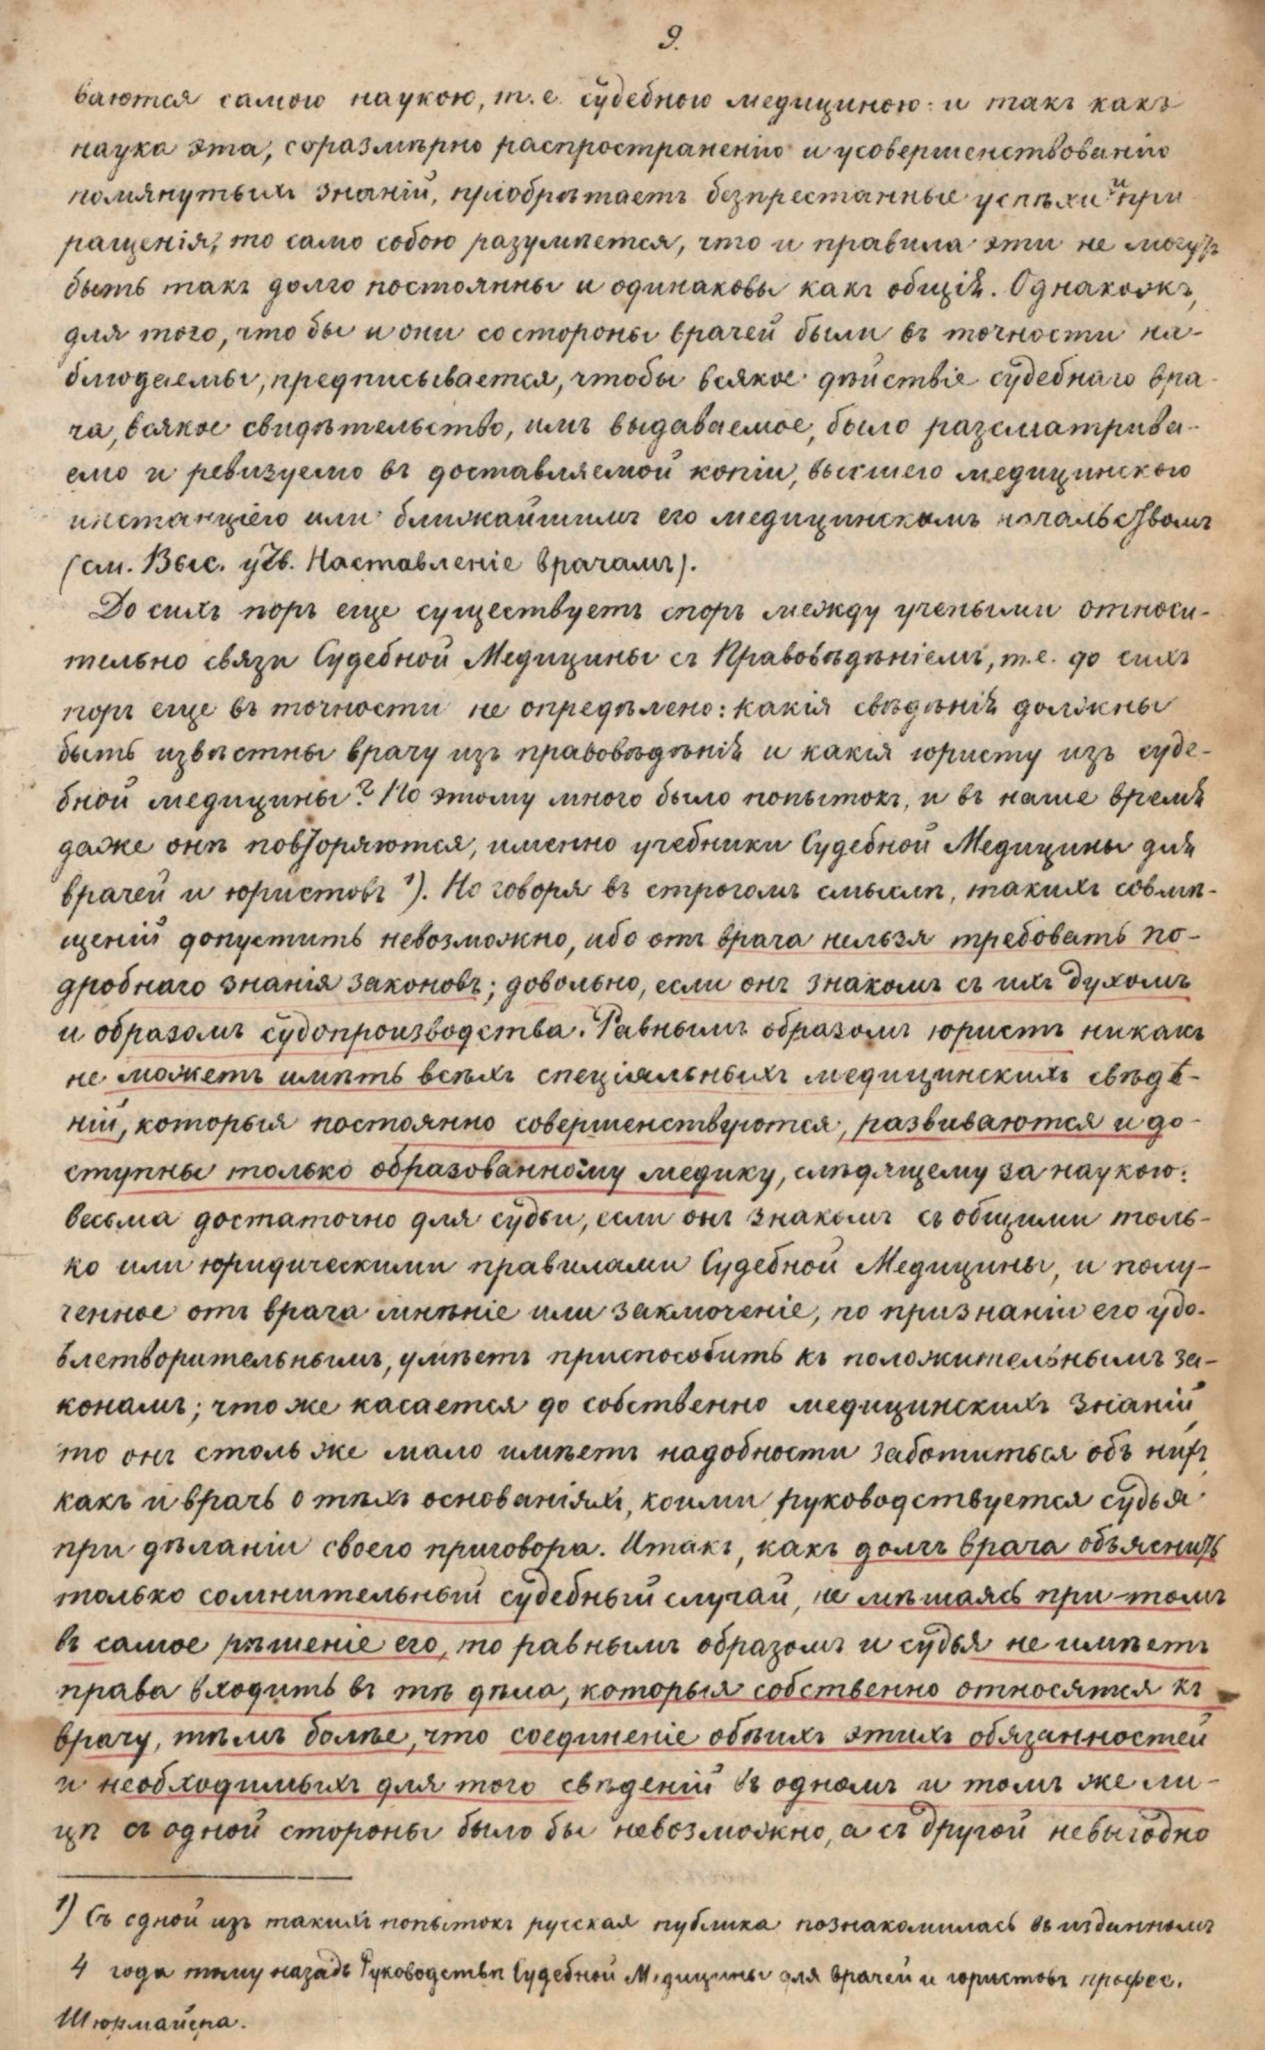 9.
ваются самою наукою, т. е. судебною медициною: и такъ какъ
наука эта, соразмѣрно распространенію и усовершенствованію
помянутыхъ знаній, пріобрѣтаетъ безпрестанные успѣхи и при
ращенія, то само собою разумѣется, что и правила эти не могутъ
быть такъ долго постоянны и одинаковы какъ общія. Однакожъ,
для того, что бы и они со стороны врачей были въ точности на-
блюдаемы, предписывается, чтобы всякое дѣйствіе судебнаго вра-
ча, всякое свидѣтельство, имъ выдаваемое, было разсматрива-
емо и ревизуемо въ доставляемой копіи, высшею медицинскою
инстанціею или ближайшимъ его медицинскимъ начальствомъ
(см. Выс. утв. Наставленіе врачамъ).
До сихъ поръ еще существуетъ споръ между учеными относи-
тельно связи Судебной Медицины съ Правовѣдѣніемъ, т.е. до сихъ
поръ еще въ точности не опредѣлено: какія свѣдѣнія должны
быть извѣстны врачу изъ правовѣдѣнія и какія юристу изъ суде-
бной медицины? По этому много было попытокъ, и въ наше время
даже онѣ повторяются, именно учебники Судебной Медицины для
врачей и юристовъ ¹). Но говоря въ строгомъ смыслѣ, такихъ совмѣ-
щеній допустить невозможно, ибо отъ врача нельзя требовать по-
дробнаго знанія законовъ; довольно, если онъ знакомъ съ ихъ духомъ
и образомъ судопроизводства. Равнымъ образомъ юристъ никакъ
не можетъ имѣть всѣхъ спеціяльныхъ медицинскихъ свѣдѣ-
ній, которыя постоянно совершенствуются, развиваются и до-
ступны только образованному медику, слѣдящему за наукою:
весьма достаточно для судьи, если онъ знакомъ съ общими толь-
ко или юридическими правилами Судебной Медицины, и полу-
ченное отъ врача мнѣніе или заключеніе, по признаніи его удо-
влетворительнымъ, умѣетъ приспособить къ положительнымъ за-
конамъ; что же касается до собственно медицинскихъ знаній
то онъ столь же мало имѣетъ надобности заботиться объ нихъ,
какъ и врачъ о тѣхъ основаніяхъ, коими руководствуется судья
при дѣланіи своего приговора. Итакъ, какъ долгъ врача объяснить
только сомнительный судебный случай, не мѣшаясь при-томъ
въ самое рѣшеніе его, то равнымъ образомъ и судья не имѣетъ
права входить въ тѣ дѣла, которыя собственно относятся къ
врачу, тѣмъ болѣе, что соединеніе обѣихъ этихъ обязанностей
и необходимыхъ для того свѣденій въ одномъ и томъ же ли-
цѣ съ одной стороны было бы невозможно, а съ другой невыгодно
¹) Съ одной изъ такихъ попытокъ русская публика познакомилась въ изданномъ
4 года тому назадъ Руководствѣ Судебной Медицины для врачей и юристовъ профес.
Шюрмайера.